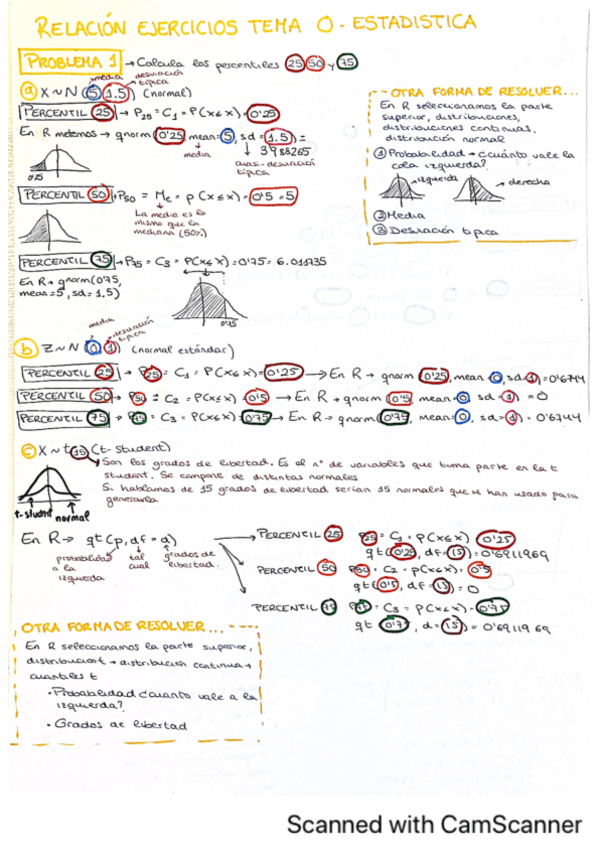 RELACIÓN EJERCICIOS TEMA 0 - ESTADISTICA
PROBLEMA 1 → Calcula los percentiles 25 50 y 75
media desviación típica
a) X ~ N (5, 1.5) (normal)
PERCENTIL 25 → P25 = C1 = P(X≤x) = 0'25
En R metemos → qnorm (0'25, mean=5, sd=1.5) =
media
3'988265
cuasi-desviación típica
0.25
PERCENTIL 50 → P50 = Me = P(X≤x) = 0'5 = 5
La media es lo
mismo que la
mediana (50%)
PERCENTIL 75 → P75 = C3 = P(X≤x) = 0'75 = 6.011735
En R → qnorm(0'75,
mean=5, sd=1.5)
0.75
OTRA FORMA DE RESOLVER...
En R seleccionamos la parte
superior, distribuciones,
distribuciones continuas,
distribución normal
① Probabilidad → ¿cuánto vale la
cola izquierda?
izquierda
derecha
② Media
③ Desviación típica
media
desviación típica
b) Z ~ N (0, 1) (normal estándar)
PERCENTIL 25 → P25 = C1 = P(X≤x) = 0'25 → En R → qnorm (0'25, mean=0, sd=1) = 0'6744
PERCENTIL 50 → P50 = C2 = P(X≤x) = 0'5 → En R → qnorm (0'5, mean=0, sd=1) = 0
PERCENTIL 75 → P75 = C3 = P(X≤x) = 0'75 → En R → qnorm (0'75, mean=0, sd=1) = 0'6744
c) X ~ t15 (t-student)
Son los grados de libertad. Es el nº de variables que toma parte en la t
student. Se compone de distintas normales
Si hablamos de 15 grados de libertad serían 15 normales que se han usado para
generarla
t-student
normal
En R → qt (p, df = a)
probabilidad
a la
izquierda
tal
cual
grados de
libertad
PERCENTIL 25 P25 = C1 = P(X≤x) 0'25
qt(0'25, df=15) = 0'6911969
PERCENTIL 50 P50 = C2 = P(X≤x) = 0'5
qt(0'5, df=15) = 0
PERCENTIL 75 P75 = C3 = P(X≤x) = 0'75
qt (0'75, d=15) = 0'6911969
OTRA FORMA DE RESOLVER...
En R seleccionamos la parte superior,
distribución t → distribución continua →
cuantiles t
• Probabilidad ¿cuanto vale a la
izquierda?
• Grados de libertad
Scanned with CamScanner